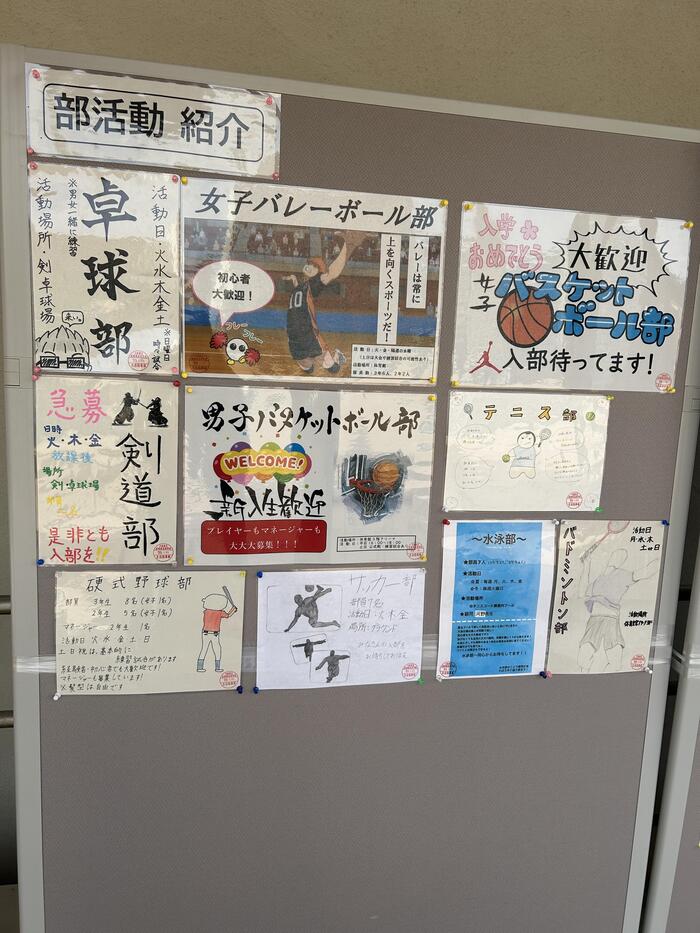 部活動 紹介
卓球部
活動日・火水木金土
※日曜日
時々試合
※男女一緒に練習
活動場所・剣卓球場
女子バレーボール部
バレーは常に
上を向くスポーツだ!
初心者
大歓迎!
フレー
フレー
10
入学
おめでとう
大歓迎
女子
バスケット
ボール部
入部待ってます!
急募
日時
火・木・金
放課後
場所
剣卓球場
是非とも
入部を!!
剣道部
男子バスケットボール部
WELCOME!
新入生歓迎
プレイヤーもマネージャーも
大大大募集!!!
テニス部
硬式野球部
部員 3年生 8名(女子1名)
2年生 5名(女子1名)
マネージャー 2年生 1名
活動日 火水金土日
土日祝は、基本的に
練習試合があります
マネージャーも募集しています!
※髪型は自由です
サッカー部
部員7名
活動日:火木金
場所:グラウンド
みなさんの入部を
お待ちしております
~水泳部~
★部員7人
★活動日
★活動場所
★顧問
バドミントン部
活動日
月・水・木
土or日
活動場所